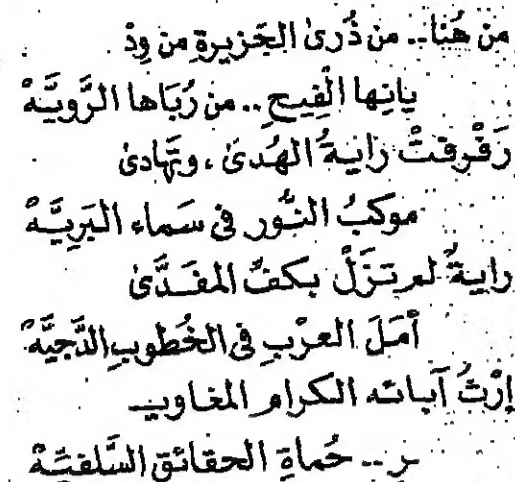 من هُنا.. من ذُرىٰ الجَزيرةِ من وِدْ
يانِها الْفِيحِ.. من رُبَاها الرَّويَّهْ
رَفْرفتْ رايةُ الهُدىٰ، وتَهادىٰ
موكبُ النُّور فى سَماءِ البَرِيَّهْ
رايةٌ لم تزَلْ بكفِّ المفَدَّىٰ
أمَلَ العرْبِ فى الخُطوبِ الدَّجيَّهْ
إرْثُ آبائه الكرامِ المغاويـ
ـرِ.. حُماةِ الحقائقِ السَّلفيَّهْ